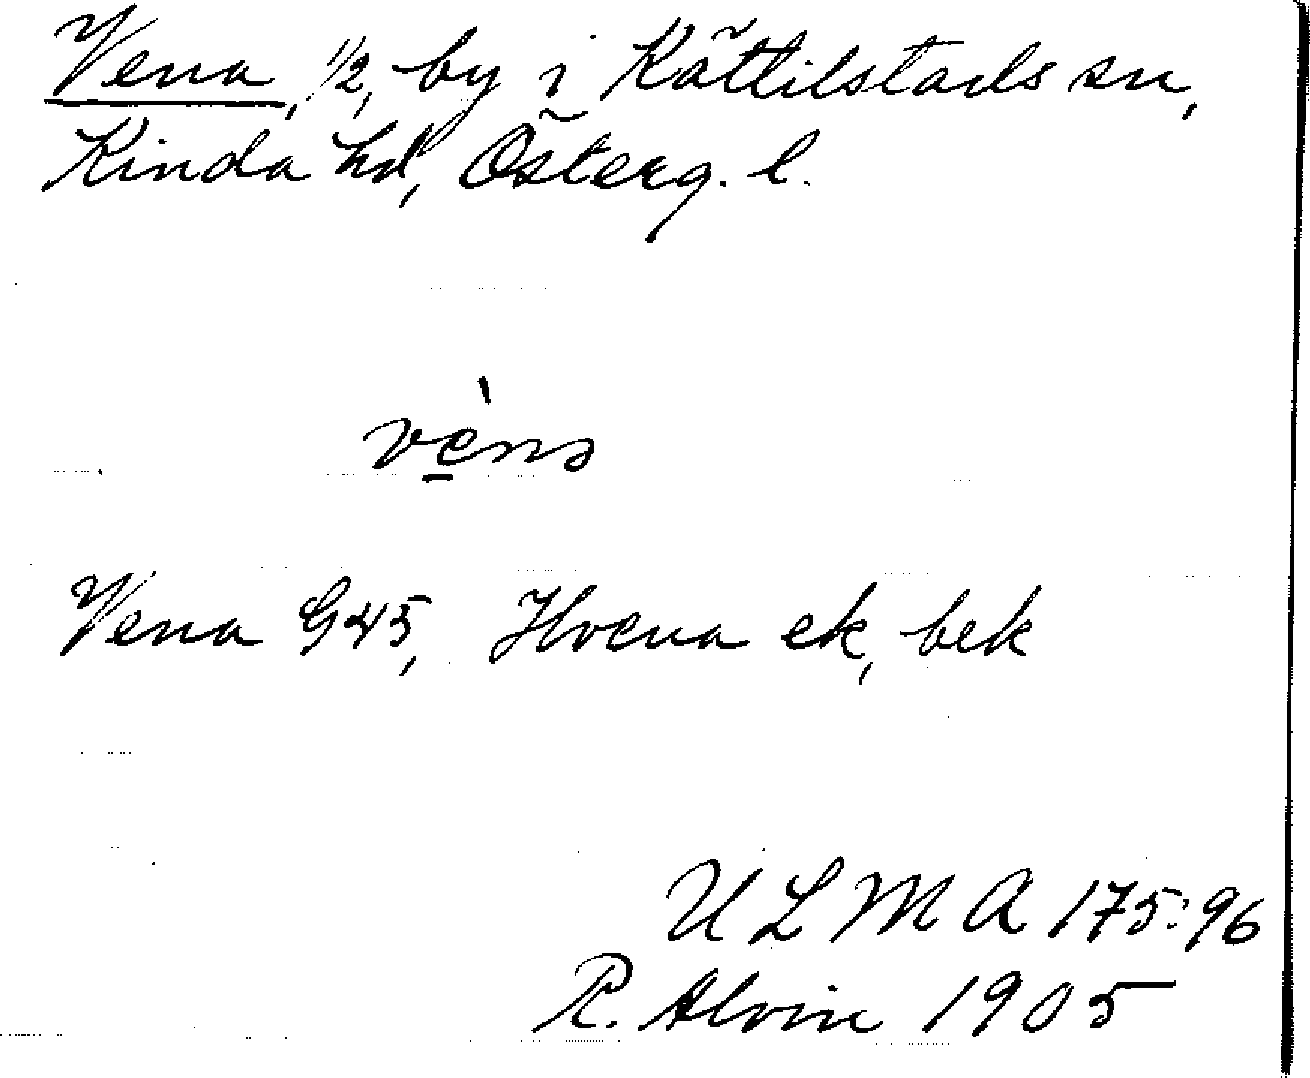 Vena, 1/2, by i Kättilstads sn,
Kinda hd, Österg. l.
vèns
Vena G45, Hvena ek, bek
ULMA 175:96
R. Alvin 1905